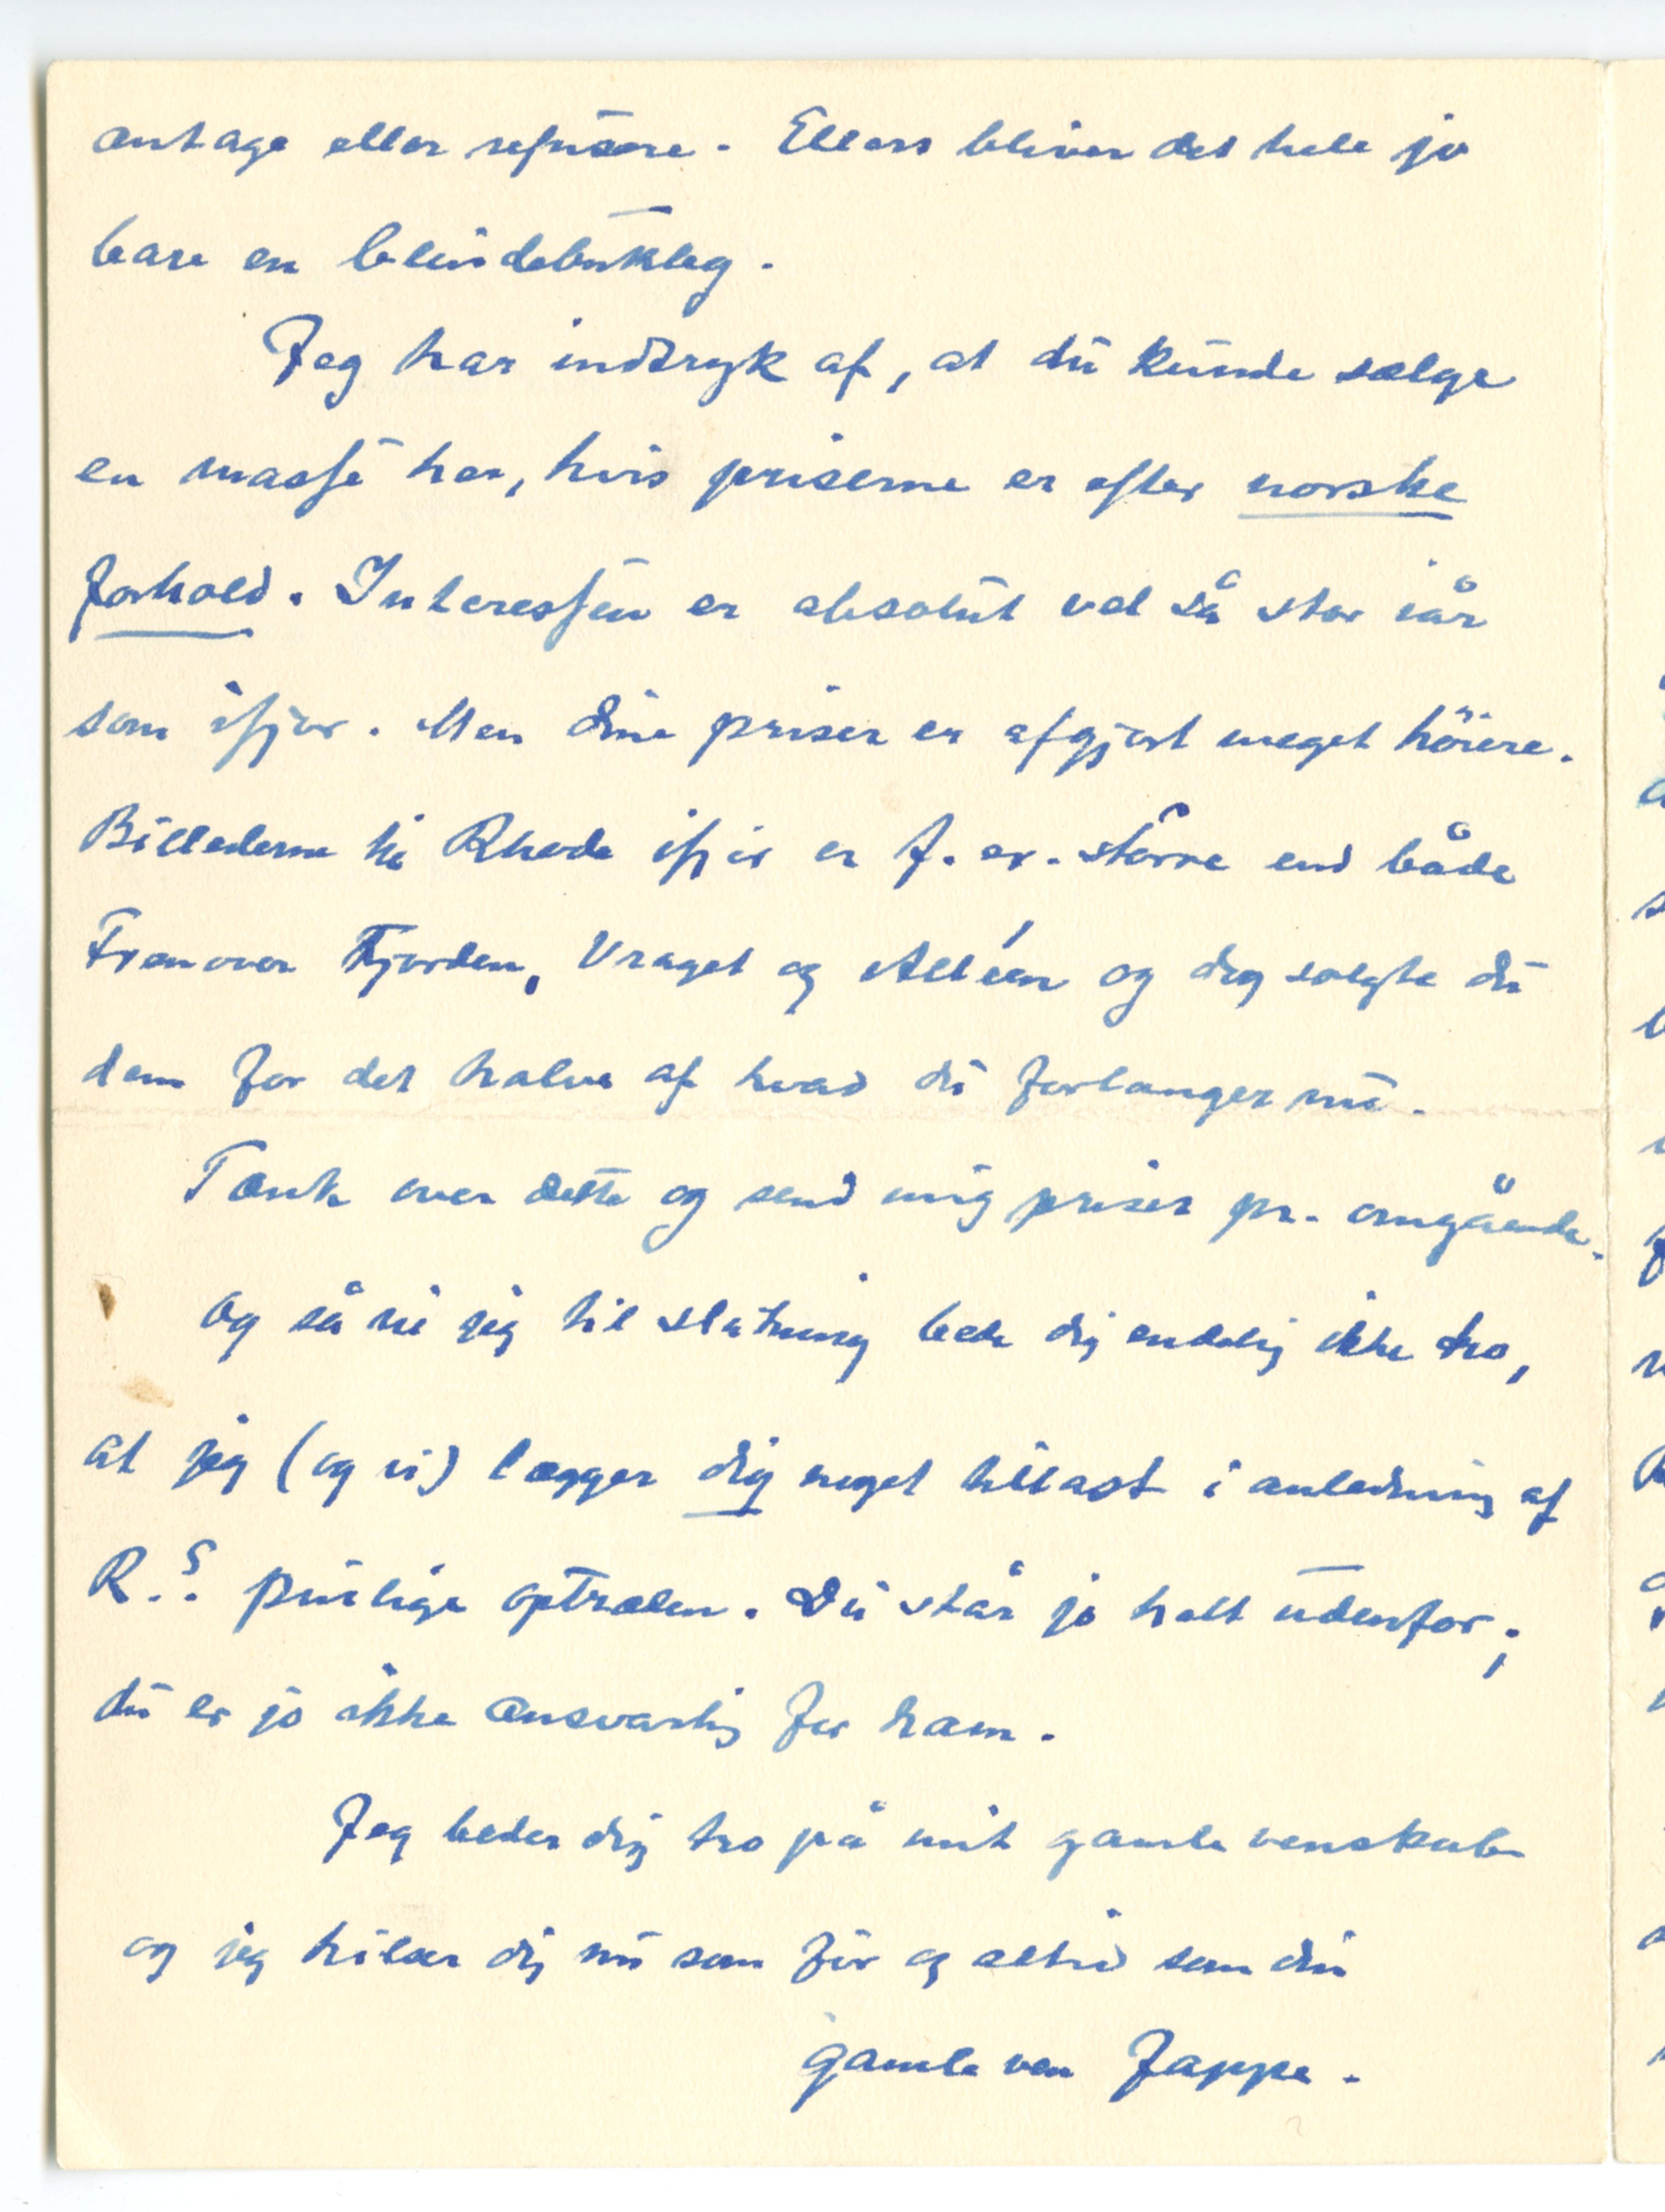 antage eller refusere. Ellers bliver det hele jo
bare en blindebukleg.
Jeg har indtryk af, at du kunde sælge
en masse her, hvis priserne er efter norske
forhold. Interessen er absolut vel så stor iår
som ifjor. Men dine priser er afgjort meget höiere.
Billederne til Rhode ifjor er f. ex. större end både
Fremover Fjorden, Vraget og Alléen og dog solgte du
dem for det halve af hvad du forlanger nu.
Tænk over dette og send mig priser pr. omgående.
Og så vil jeg til slutning bede dig endelig ikke tro,
at jeg (og vi) lægger dig noget tillast i anledning af
R.s. purlige optræden. Du står jo helt udenfor;
du er jo ikke ansvarlig for ham.
Jeg beder dig tro på mit gamle venskab
og jeg hilser dig nu som för og altid som din
gamle ven Jappe.